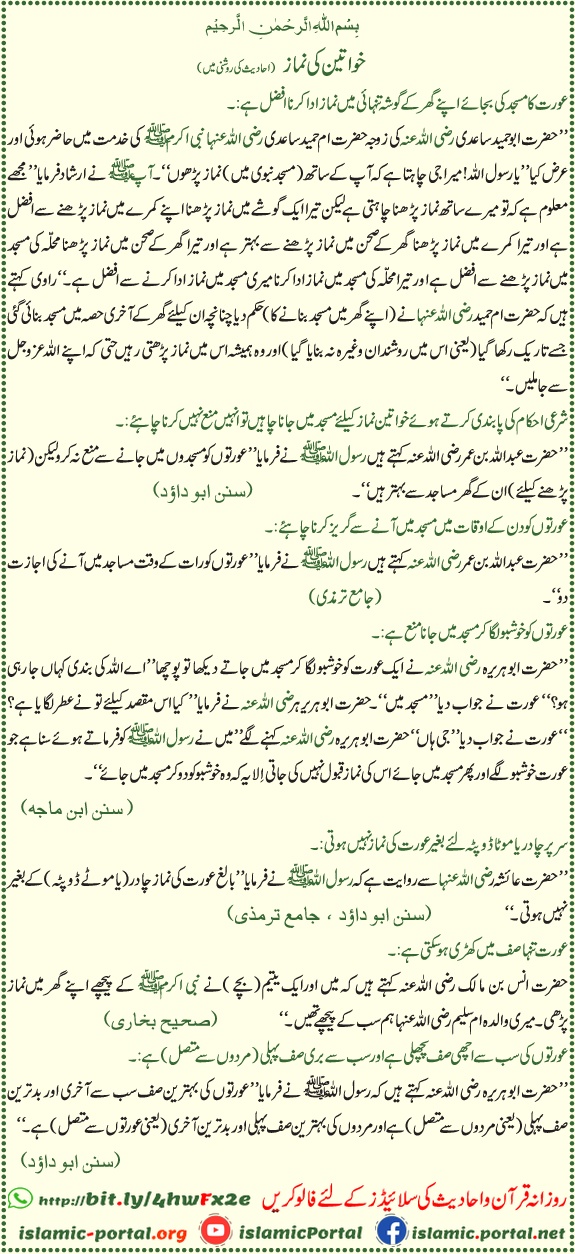 بِسْمِ اللهِ الرَّحْمٰنِ الرَّحِيْمِ
خواتین کی نماز (احادیث کی روشنی میں)
عورت کا مسجد کی بجائے اپنے گھر کے گوشہ تنہائی میں نماز ادا کرنا افضل ہے:۔
’’حضرت ابو حمید ساعدی رضی اللہ عنہ کی زوجہ حضرت ام حمید ساعدی رضی اللہ عنہا نبی اکرم ﷺ کی خدمت میں حاضر ہوئی اور
عرض کیا’’یا رسول اللہ! میرا جی چاہتا ہے کہ آپ کے ساتھ (مسجد نبوی میں) نماز پڑھوں‘‘۔ آپ ﷺ نے ارشاد فرمایا’’مجھے
معلوم ہے کہ تو میرے ساتھ نماز پڑھنا چاہتی ہے لیکن تیرا ایک گوشے میں نماز پڑھنا اپنے کمرے میں نماز پڑھنے سے افضل
ہے اور تیرا کمرے میں نماز پڑھنا گھر کے صحن میں نماز پڑھنے سے بہتر ہے اور تیرا گھر کے صحن میں نماز پڑھنا محلّہ کی مسجد
میں نماز پڑھنے سے افضل ہے اور تیرا محلّہ کی مسجد میں نماز ادا کرنا میری مسجد میں نماز ادا کرنے سے افضل ہے۔‘‘ راوی کہتے
ہیں کہ حضرت ام حمید رضی اللہ عنہا نے (اپنے گھر میں مسجد بنانے کا) حکم دیا چنانچہ ان کیلئے گھر کے آخری حصہ میں مسجد بنائی گئی
جسے تاریک رکھا گیا (یعنی اس میں روشندان وغیرہ نہ بنایا گیا) اور وہ ہمیشہ اس میں نماز پڑھتی رہیں حتی کہ اپنے اللہ عز و جل
سے جا ملیں۔‘‘
شرعی احکام کی پابندی کرتے ہوئے خواتین نماز کیلئے مسجد میں جانا چاہیں تو انہیں منع نہیں کرنا چاہئے:۔
’’حضرت عبد اللہ بن عمر رضی اللہ عنہ کہتے ہیں رسول اللہ ﷺ نے فرمایا’’عورتوں کو مسجدوں میں جانے سے منع نہ کرو لیکن (نماز
پڑھنے کیلئے) ان کے گھر مساجد سے بہتر ہیں‘‘۔ (سنن ابو داؤد)
عورتوں کو دن کے اوقات میں مسجد میں آنے سے گریز کرنا چاہئے:۔
’’حضرت عبد اللہ بن عمر رضی اللہ عنہ کہتے ہیں رسول اللہ ﷺ نے فرمایا’’عورتوں کو رات کے وقت مساجد میں آنے کی اجازت
دو‘‘۔ (جامع ترمذی)
عورتوں کو خوشبو لگا کر مسجد میں جانا منع ہے:۔
’’حضرت ابو ہریرہ رضی اللہ عنہ نے ایک عورت کو خوشبو لگا کر مسجد میں جاتے دیکھا تو پوچھا’’اے اللہ کی بندی کہاں جا رہی
ہو؟‘‘ عورت نے جواب دیا’’مسجد میں‘‘۔ حضرت ابو ہریرہ رضی اللہ عنہ نے فرمایا’’کیا اس مقصد کیلئے تو نے عطر لگایا ہے؟
‘‘ عورت نے جواب دیا’’جی ہاں‘‘ حضرت ابو ہریرہ رضی اللہ عنہ کہنے لگے’’میں نے رسول اللہ ﷺ کو فرماتے ہوئے سنا ہے جو
عورت خوشبو لگے اور پھر مسجد میں جائے اس کی نماز قبول نہیں کی جاتی اِلا یہ کہ وہ خوشبو کو دو کر مسجد میں جائے‘‘۔
(سنن ابن ماجه)
سر پر چادر یا موٹا ڈوپٹہ لئے بغیر عورت کی نماز نہیں ہوتی:۔
’’حضرت عائشہ رضی اللہ عنہا سے روایت ہے کہ رسول اللہ ﷺ نے فرمایا’’بالغ عورت کی نماز چادر (یا موٹے ڈوپٹہ) کے بغیر
نہیں ہوتی۔‘‘ (سنن ابو داؤد ، جامع ترمذی)
عورت تنہا صف میں کھڑی ہو سکتی ہے:۔
حضرت انس بن مالک رضی اللہ عنہ کہتے ہیں کہ میں اور ایک یتیم (بچے) نے نبی اکرم ﷺ کے پیچھے اپنے گھر میں نماز
پڑھی۔ میری والدہ ام سلیم رضی اللہ عنہا ہم سب کے پیچھے تھیں۔‘‘ (صحیح بخاری)
عورتوں کی سب سے اچھی صف پچھلی ہے اور سب سے بری صف پہلی (مردوں سے متصل) ہے:۔
’’حضرت ابو ہریرہ رضی اللہ عنہ کہتے ہیں کہ رسول اللہ ﷺ نے فرمایا’’عورتوں کی بہترین صف سب سے آخری اور بدترین
صف پہلی (یعنی مردوں سے متصل) ہے اور مردوں کی بہترین صف پہلی اور بدترین آخری (یعنی عورتوں سے متصل) ہے۔‘‘
(سنن ابو داؤد)
روزانہ قرآن و احادیث کی سلائیڈز کے لئے فالو کریں http://bit.ly/4hwFx2e
islamic-portal.org islamicPortal islamic.portal.net